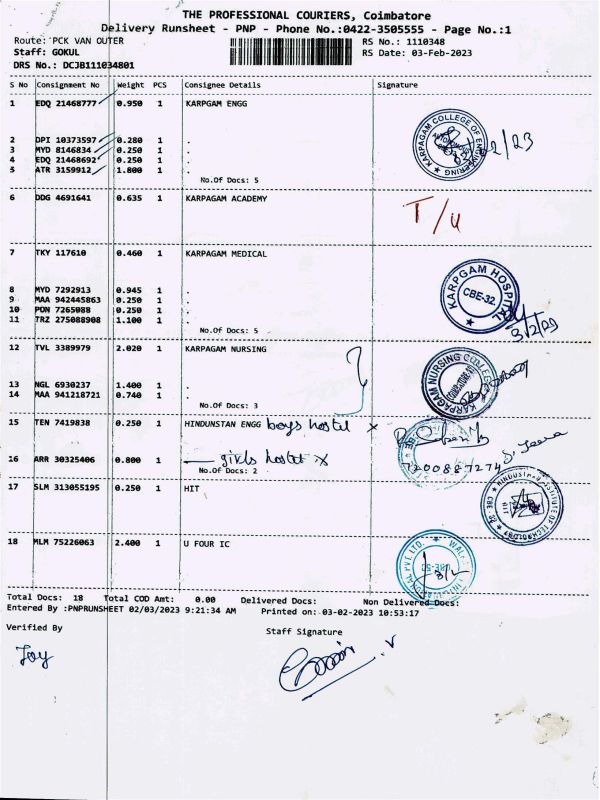 THE PROFESSIONAL COURIERS, Coimbatore
Delivery Runsheet - PNP - Phone No.:0422-3505555 - Page No.:1
Route: PCK VAN OUTER RS No.: 1110348
Staff: GOKUL RS Date: 03-Feb-2023
DRS No.: DCJB111034801
S No Consignment No Weight PCS Consignee Details Signature
1 EDQ 21468777 0.950 1 KARPGAM ENGG
KARPAGAM COLLEGE OF ENGINEERING
AUTONOMOUS
2/23
2 DPI 10373597 0.280 1 .
3 MYD 8146834 0.250 1 .
4 EDQ 21468692 0.250 1 .
5 ATR 3159912 1.800 1 .
No.Of Docs: 5
6 DDG 4691641 0.635 1 KARPAGAM ACADEMY
T/U
7 TKY 117610 0.460 1 KARPAGAM MEDICAL
KARPAGAM HOSPITAL
CBE-32.
3/2/23
8 MYD 7292913 0.945 1 .
9 MAA 942445863 0.250 1 .
10 PON 7265088 0.250 1 .
11 TRZ 275088908 1.100 1 .
No.Of Docs: 5
12 TVL 3389979 2.020 1 KARPAGAM NURSING
KARPAGAM NURSING COLLEGE
13 NGL 6930237 1.400 1 .
14 MAA 941218721 0.740 1 .
No.Of Docs: 3
15 TEN 7419838 0.250 1 HINDUNSTAN ENGG boys hostel x
16 ARR 30325406 0.800 1 girls hostel x
7200887274
No.Of Docs: 2
17 SLM 313055195 0.250 1 HIT
HINDUSTAN INSTITUTE OF TECHNOLOGY
18 MLM 75226063 2.400 1 U FOUR IC
Total Docs: 18 Total COD Amt: 0.00 Delivered Docs: Non Delivered Docs:
Entered By :PNPRUNSHEET 02/03/2023 9:21:34 AM Printed on: 03-02-2023 10:53:17
Verified By Staff Signature
Joy